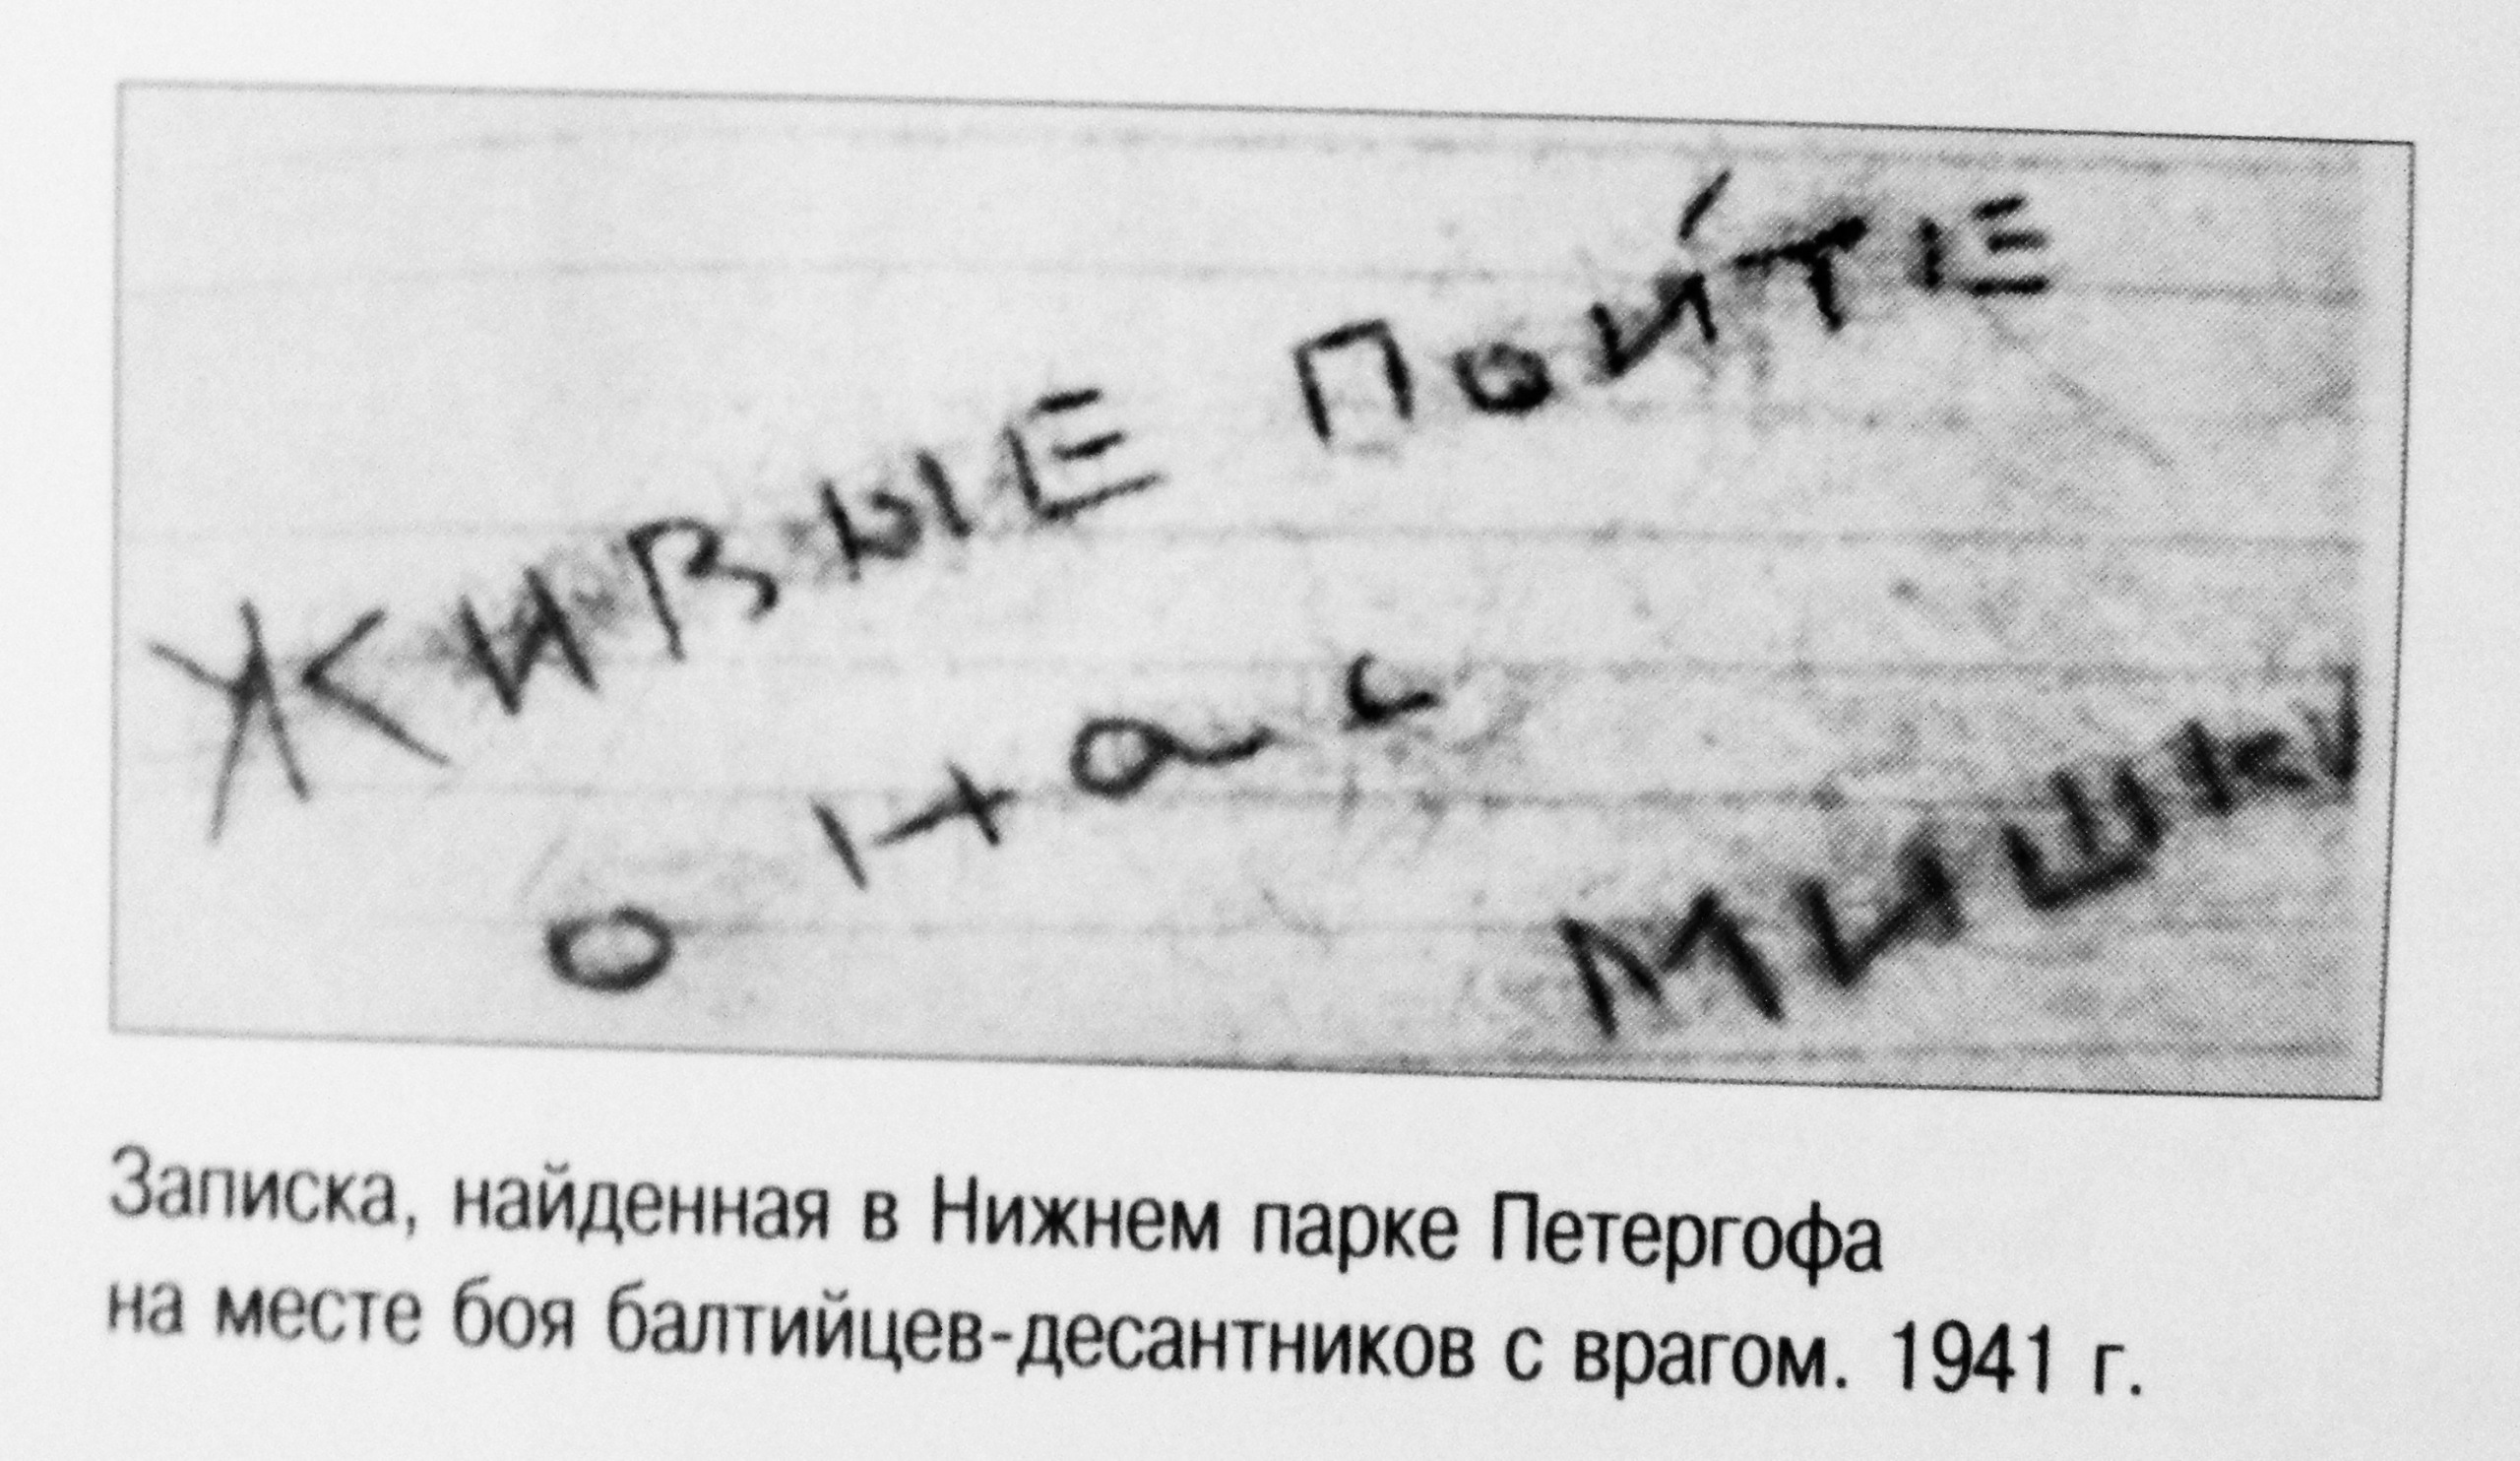 ЖИВЫЕ ПОЙТЕ
о нас
МИШКИ
Записка, найденная в Нижнем парке Петергофа
на месте боя балтийцев-десантников с врагом. 1941 г.